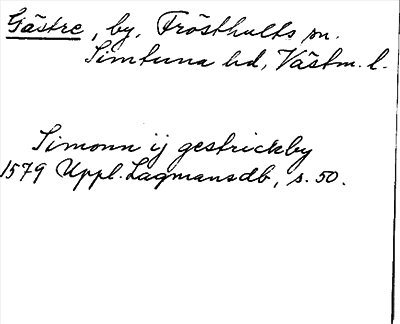 Gästre, by, Frösthults sn.
Simtuna hd, Västm. l.
Simonn ij gestrickby
1579 Uppl. Lagmansdb, s. 50.